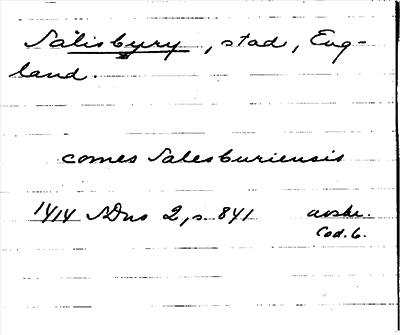 Salisbyry, stad, Eng-
land.
comes Salesburiensis
1414 SDns 2, s. 841 avskr.
Cod. 6.